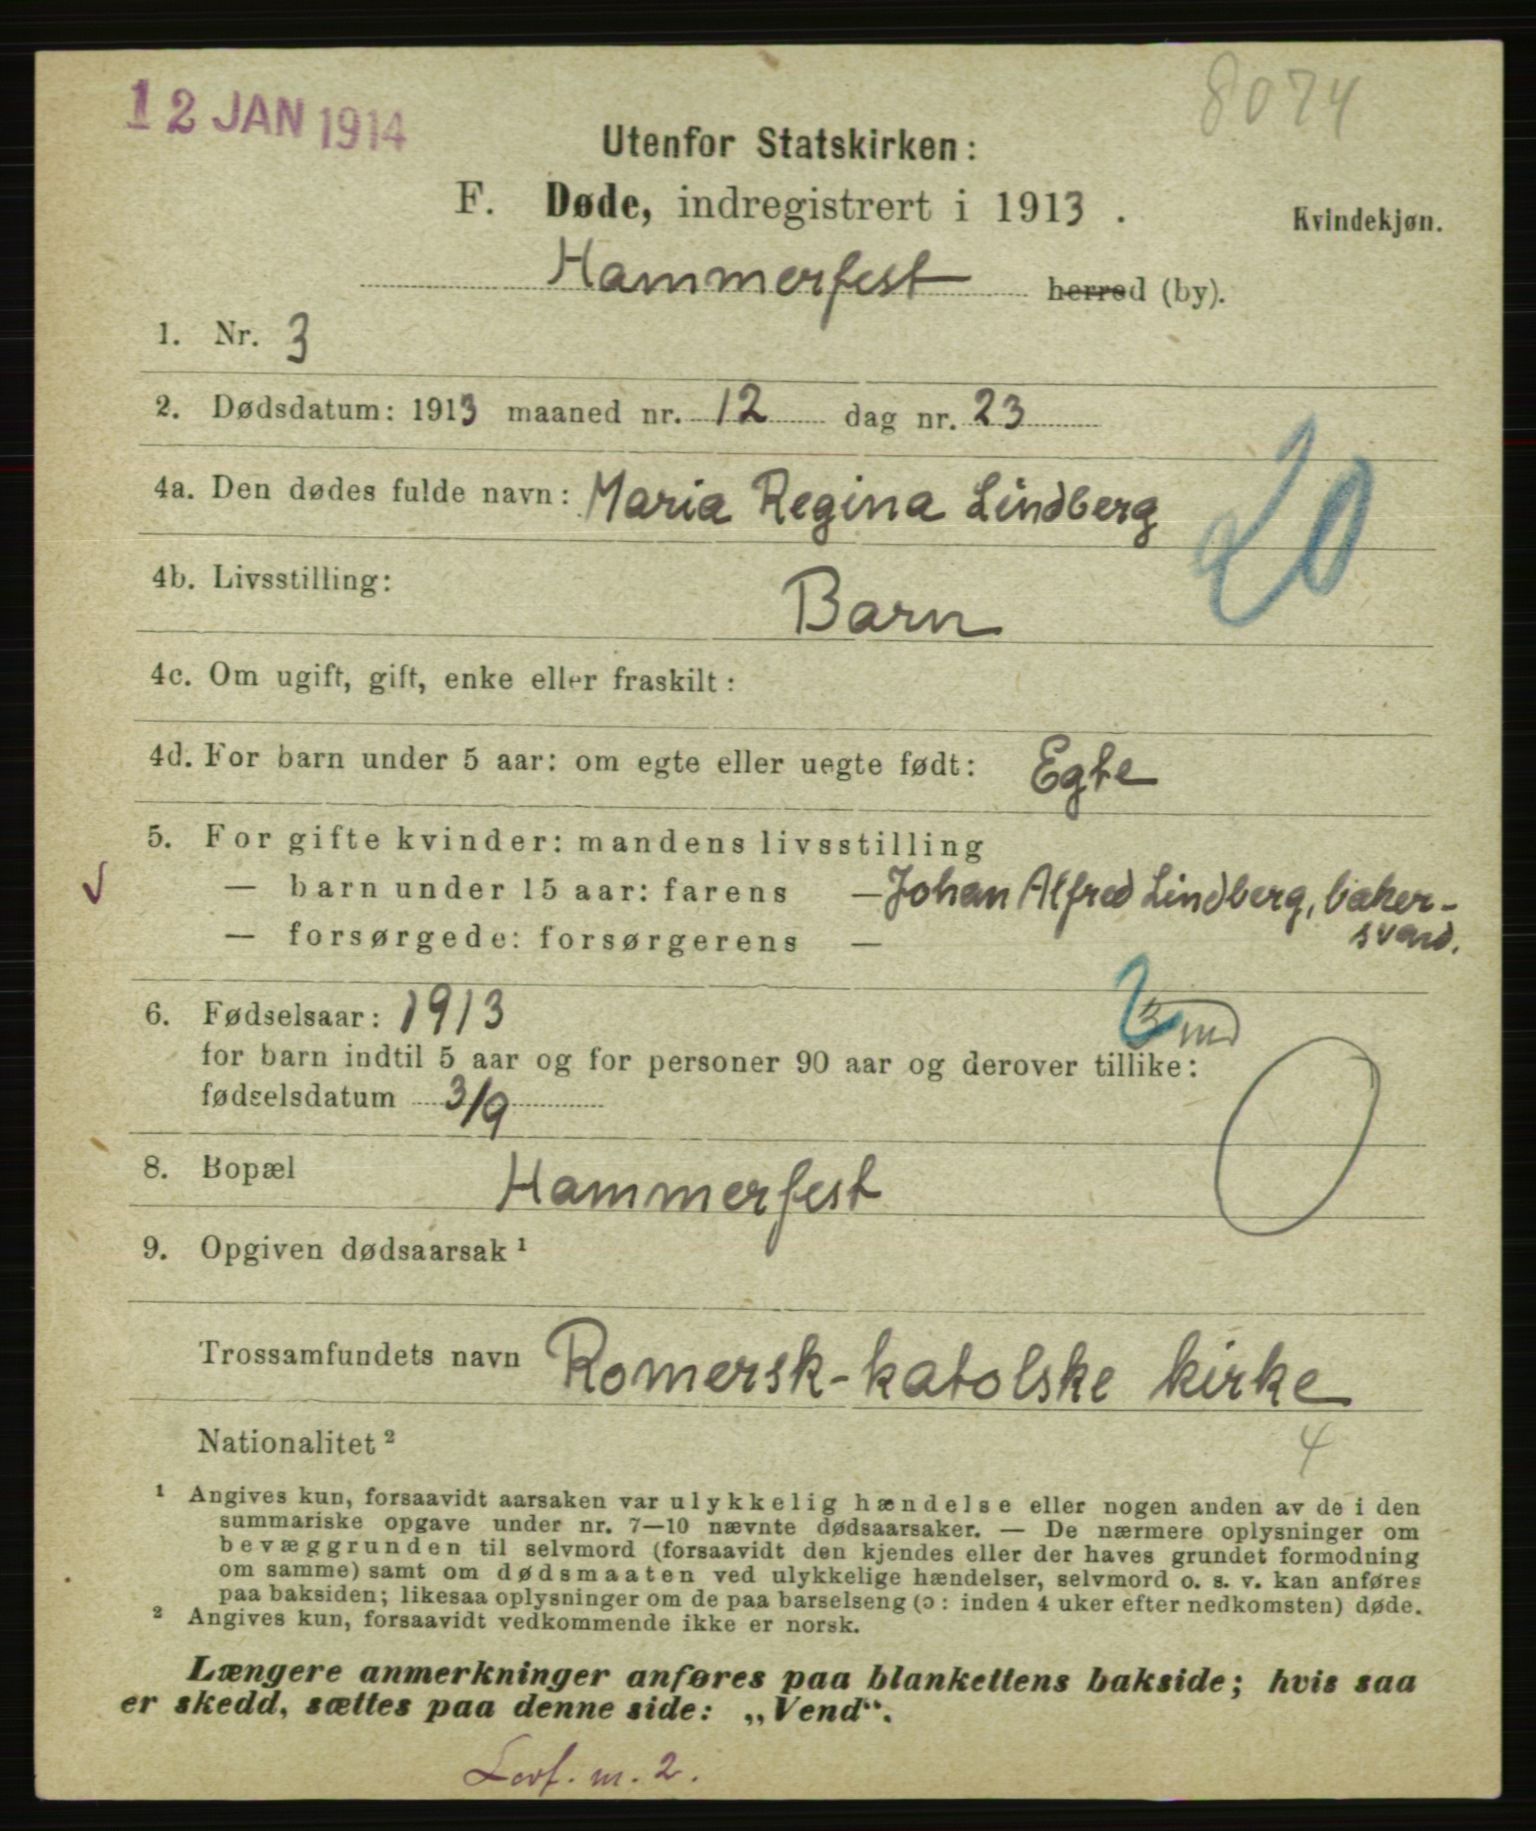 12 JAN 1914
8074
Utenfor Statskirken:
F. Døde, indregistrert i 1913 .
Kvindekjøn.
Hammerfest herred (by).
1. Nr. 3
2. Dødsdatum: 1913 maaned nr. 12 dag nr. 23
4a. Den dødes fulde navn: Maria Regina Lindberg
20
4b. Livsstilling: Barn
4c. Om ugift, gift, enke eller fraskilt:
4d. For barn under 5 aar: om egte eller uegte født: Egte
5. For gifte kvinder: mandens livsstilling
— barn under 15 aar: farens — Johan Alfred Lindberg, baker-
svend.
— forsørgede: forsørgerens —
6. Fødselsaar: 1913
3 md
for barn indtil 5 aar og for personer 90 aar og derover tillike:
fødselsdatum 3/9
0
8. Bopæl Hammerfest
9. Opgiven dødsaarsak ¹
Trossamfundets navn Romersk-katolske kirke
Nationalitet ²
4
¹ Angives kun, forsaavidt aarsaken var ulykkelig hændelse eller nogen anden av de i den
summariske opgave under nr. 7—10 nævnte dødsaarsaker. — De nærmere oplysninger om
bevæggrunden til selvmord (forsaavidt den kjendes eller der haves grundet formodning
om samme) samt om dødsmaaten ved ulykkelige hændelser, selvmord o. s. v. kan anføres
paa baksiden; likesaa oplysninger om de paa barselseng (ɔ: inden 4 uker efter nedkomsten) døde.
² Angives kun, forsaavidt vedkommende ikke er norsk.
Længere anmerkninger anføres paa blankettens bakside; hvis saa
er skedd, sættes paa denne side: „Vend“.
m. 2.